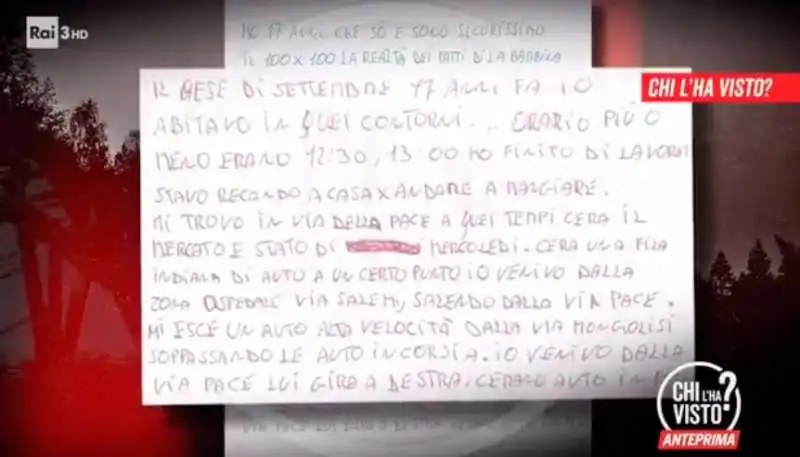 Rai 3HD
HO 17 ANNI CHE SO E SONO SICURISSIMO
IL 100X100 LA REALTÀ DEI FATTI DI LA BAMBINA
CHI L'HA VISTO?
IL MESE DI SETTEMBRE 17 ANNI FA IO
ABITAVO IN QUEI CONTORNI... ORARIO PIÙ O
MENO ERANO 12:30, 13:00 HO FINITO DI LAVORA
STAVO RECANDO A CASA X ANDARE A MANGIARE.
MI TROVO IN VIA DELLA PACE A QUEI TEMPI CERA IL
MERCATO E STATO DI MERCOLEDI. CERA UNA FILA
INDIANA DI AUTO A UN CERTO PUNTO IO VENIVO DALLA
ZONA OSPEDALE VIA SALEMI, SALENDO DALLO VIA PACE.
MI ESCE UN AUTO ALTA VELOCITÀ DALLA VIA MONGIOLISI
SOPPASSANDO LE AUTO IN CORSIA. IO VENIVO DALLA
VIA PACE LUI GIRA A DESTRA. CERANO AUTO IN
CHI L'HA VISTO?
ANTEPRIMA